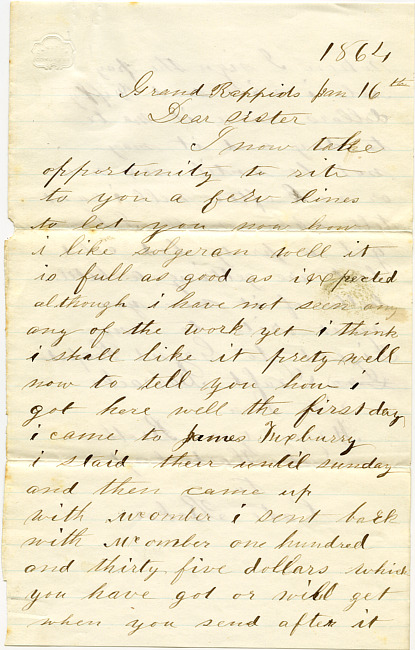 1864
Grand Rappids Jan 16th
Dear Sister
I now take
opportunity to rite
to you a few lines
to let you now how
i like solgeran well it
is full as good as i expected
although i have not seen any
any of the work yet i think
i shall like it prety well
now to tell you how i
got here well the first day
i came to James
i staid their until sunday
and then came up
with Mcomber i sent back
with Mcomber one hundred
and thirty five dollars which
you have got or will get
when you send after it